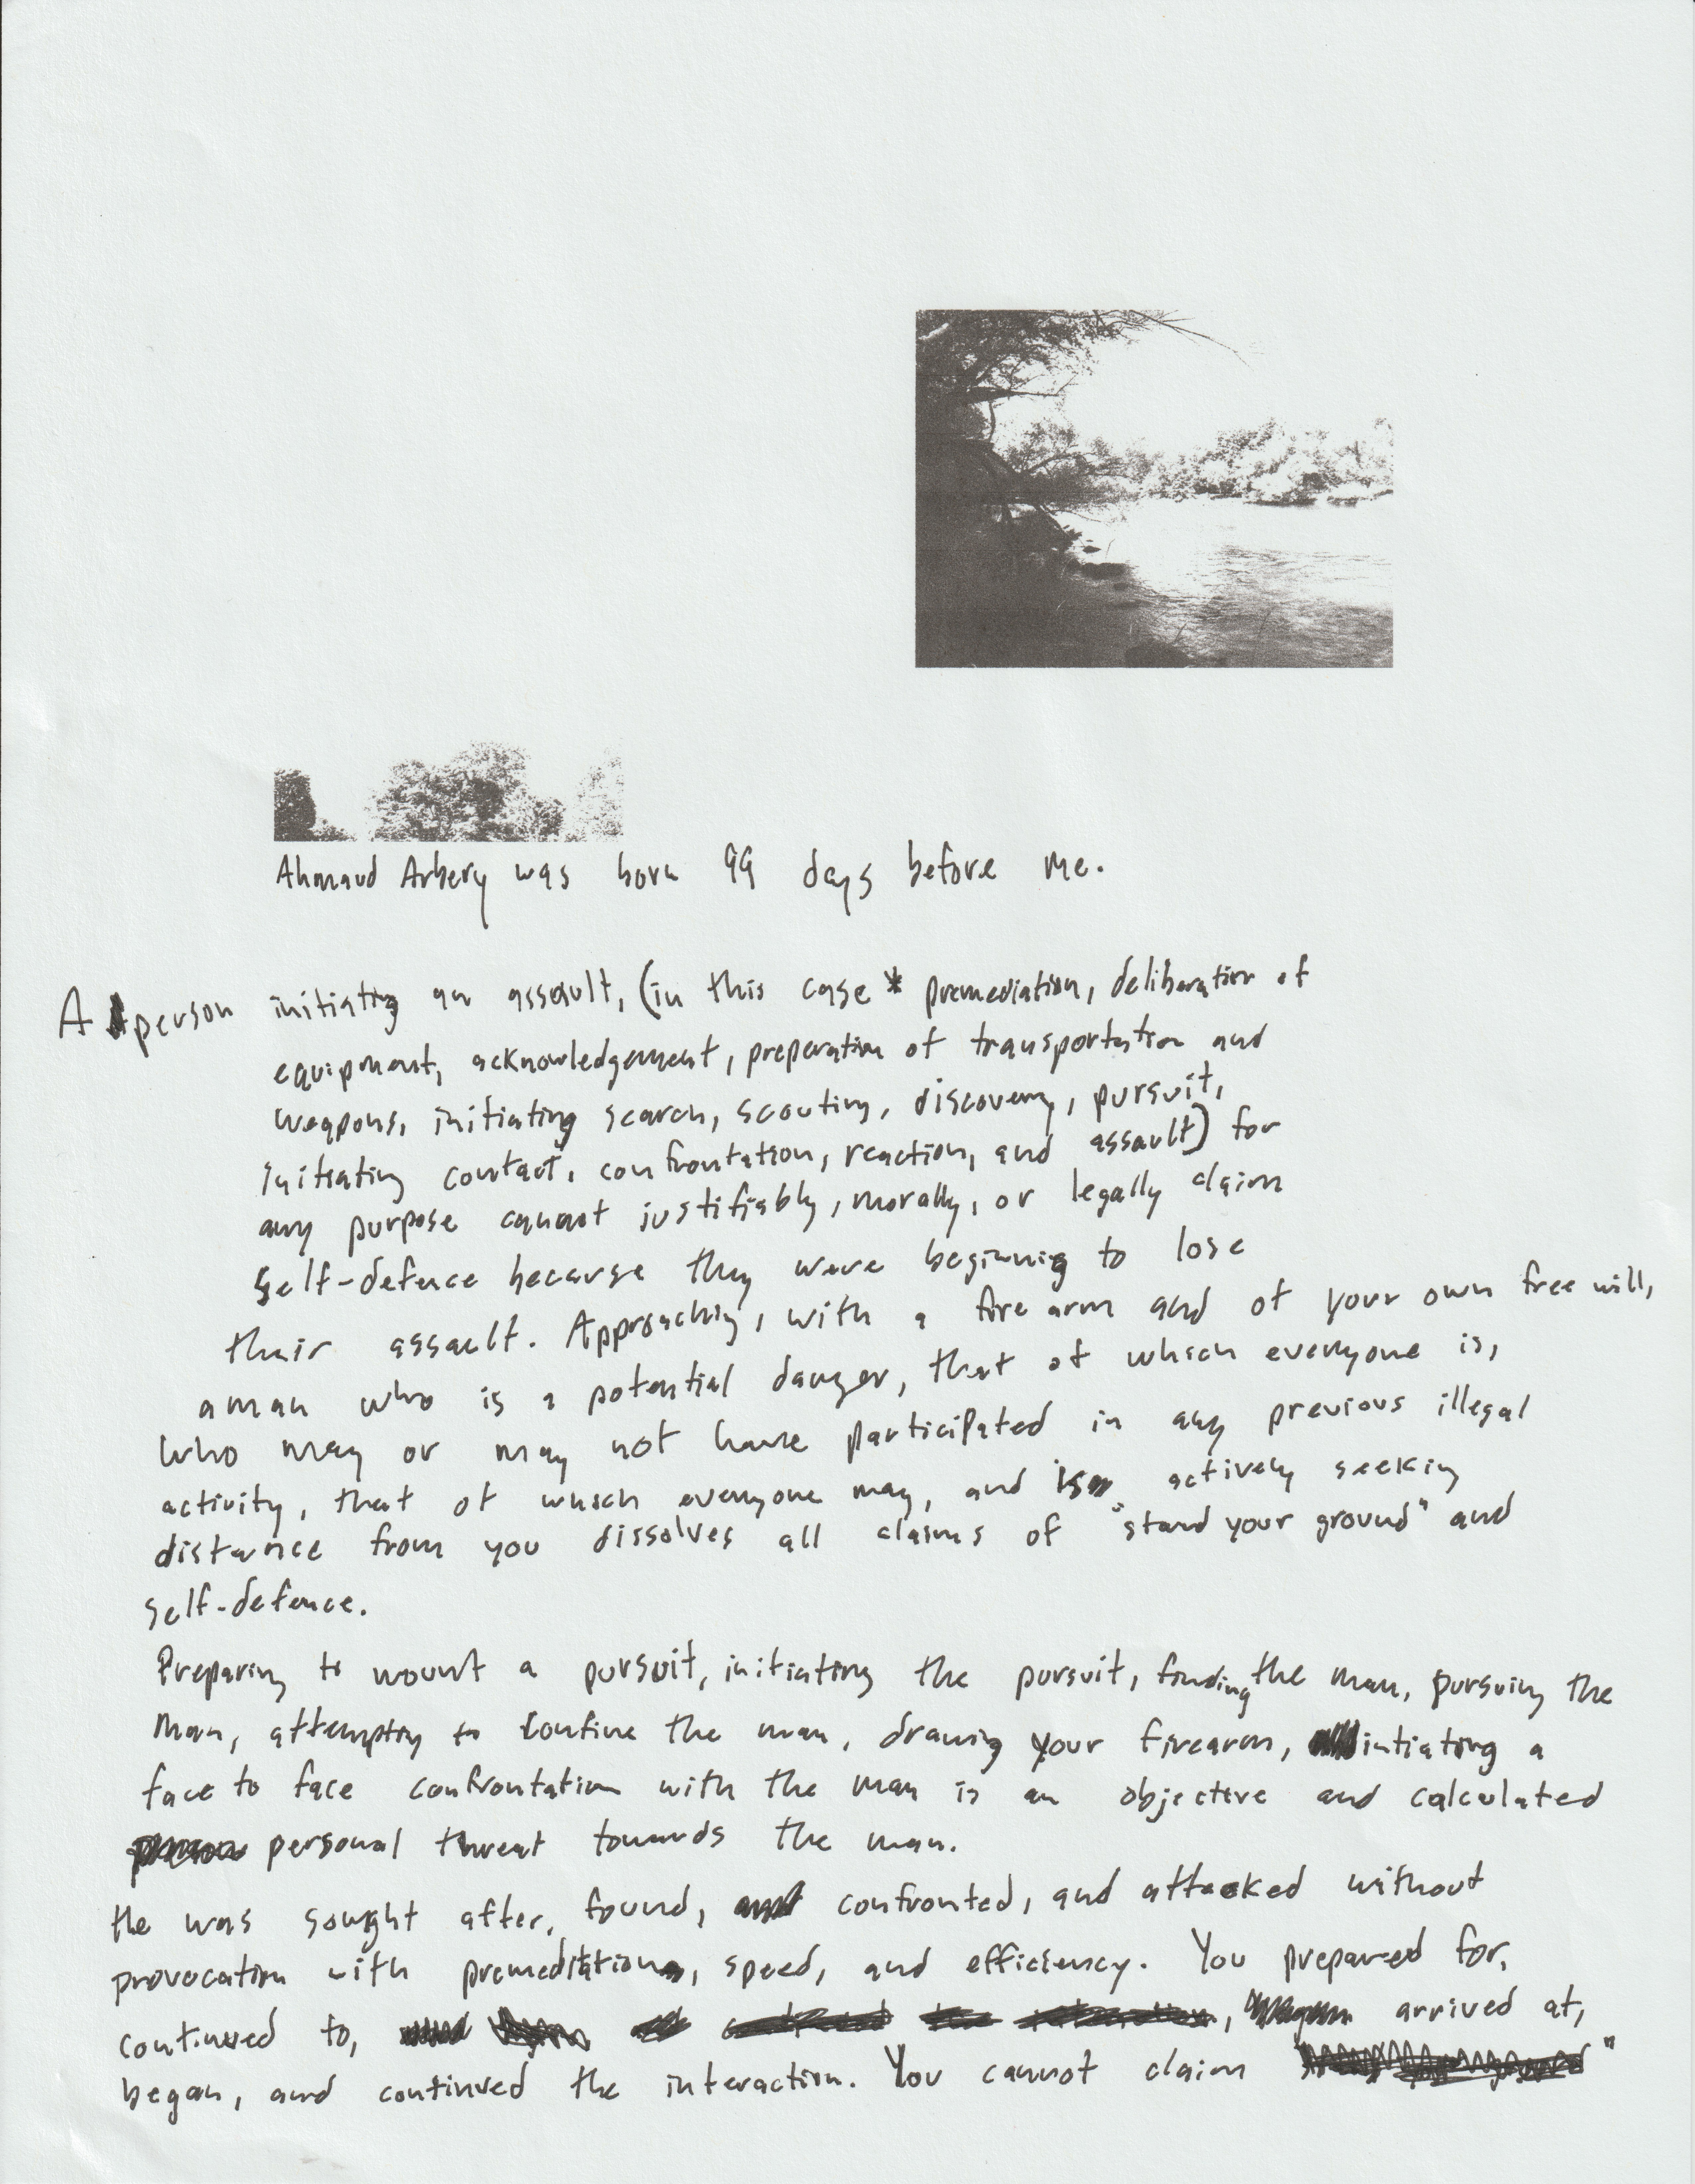 Ahmaud Arbery was born 99 days before me.
A person initiating an assault, (in this case * premediation, deliberation of
equipment, acknowledgement, preperation of transportation and
weapons, initiating search, scouting, discovery, pursuit,
initiating contact, confrontation, reaction, and assault) for
any purpose cannot justifiably, morally, or legally claim
self-defence because they were beginning to lose
their assault. Approaching, with a fire arm and of your own free will,
a man who is a potential danger, that of which everyone is,
who may or may not have participated in any previous illegal
activity, that of which everyone may, and is actively seeking
distance from you dissolves all claims of "stand your ground" and
self-defence.
Preparing to mount a pursuit, initiating the pursuit, finding the man, pursuing the
man, attempting to confine the man, drawing your firearm, intiating a
face to face confrontation with the man is an objective and calculated
personal threat towards the man.
He was sought after, found, confronted, and attacked without
provocation with premeditation, speed, and efficiency. You prepared for,
continued to, , arrived at,
began, and continued the interaction. You cannot claim "